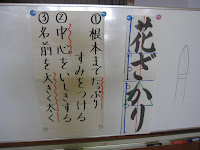 花ざかり
①根本までたっぷり
すみをつける
②中心をいしきする
③名前を大きく太く